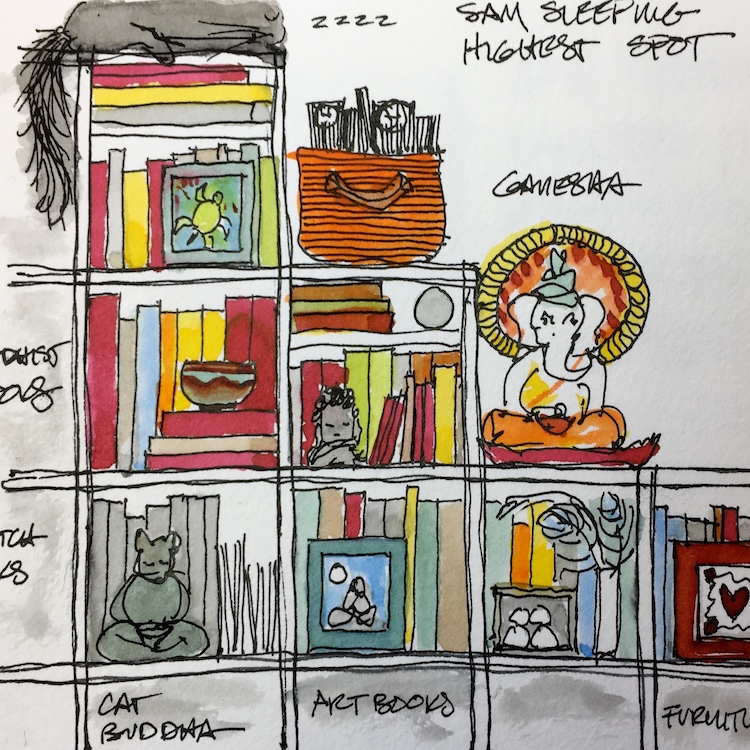 ZZZZ
SAM SLEEPING
HIGHEST SPOT
GANESHA
OOKS
TCH
KS
CAT
BUDDHA
ART BOOKS
FURNITU